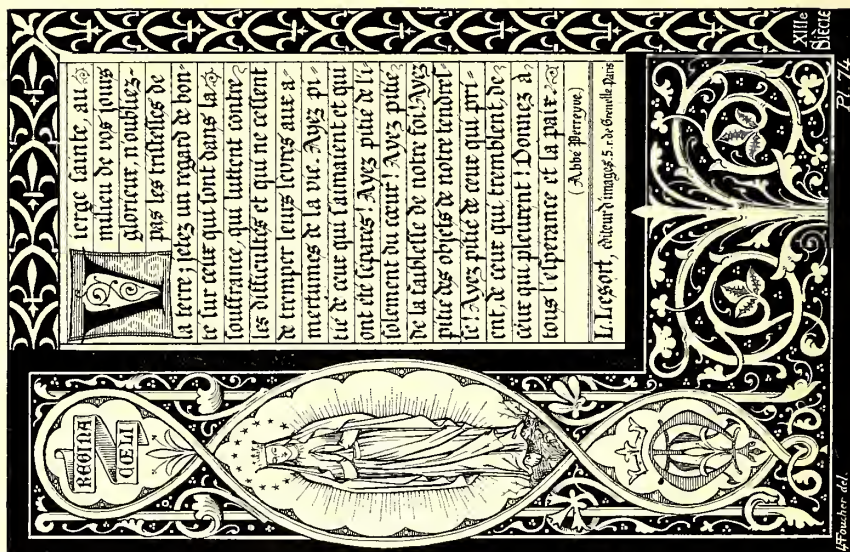 XIIIe
SIÈCLE
Vierge sainte, au
milieu de vos jours
glorieux, n'oubliez-
pas les tristesses de
la terre; jetez un regard de bon-
té sur ceux qui sont dans la
souffrance, qui luttent contre
les difficultés et qui ne cessent
de tremper leurs lèvres aux a-
mertumes de la vie. Ayez pi-
tié de ceux qui s'aimaient et qui
ont été séparés! Ayez pitié de l'i-
solement du cœur! Ayez pitié
de la faiblesse de notre foi! Ayez
pitié des objets de notre tendres-
se! Ayez pitié de ceux qui pri-
ent, de ceux qui tremblent, de
ceux qui pleurent! Donnez à
tous l'espérance et la paix.
(Abbé Perreyve)
L. Lesort, éditeur d'images, 5, r. de Grenelle Paris
REGINA
CŒLI
Foucher del.
Pl. 74